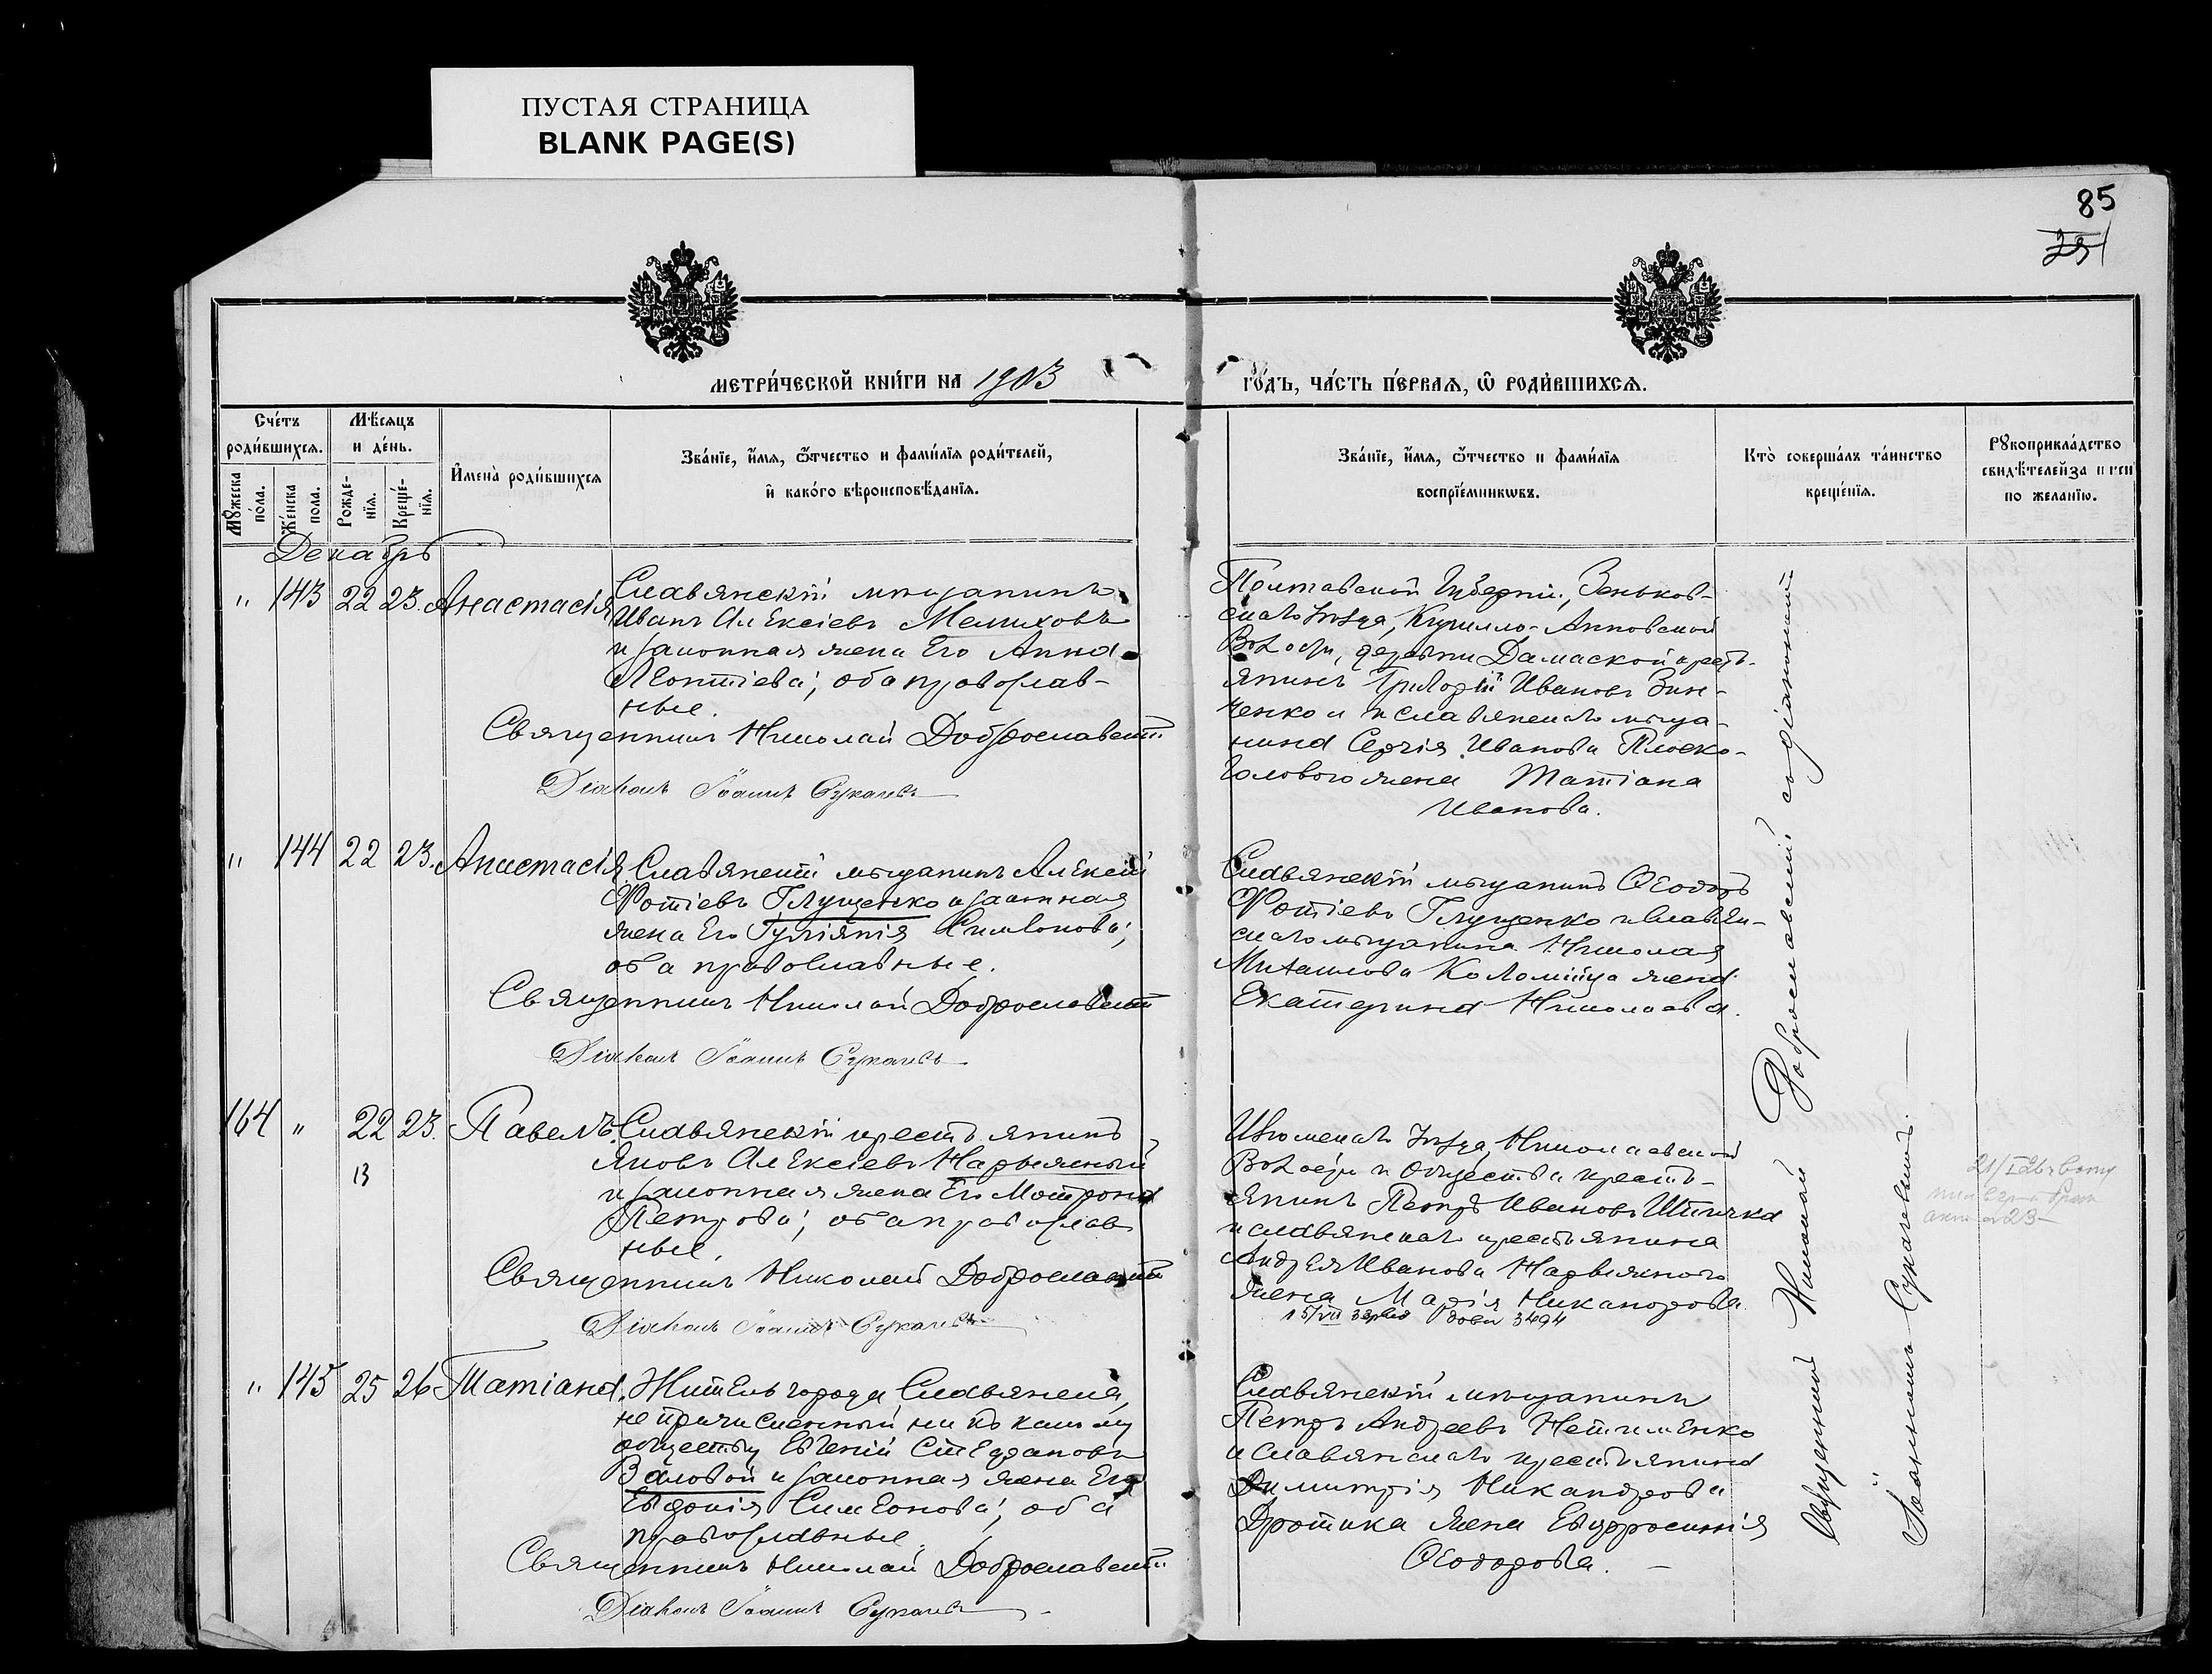 ПУСТАЯ СТРАНИЦА
BLANK PAGE(S)
85
251
МЕТРИ́ЧЕСКОЙ КНИ́ГИ НА 1903
ГО́ДЪ, ЧА́СТЬ ПЕ́РВАѦ, Ѿ РОДИ́ВШИХСѦ.
Сче́тъ
роди́вшихсѧ.
Мѣ́сѧцъ
и де́нь.
Мꙋ́жеска
по́ла.
Же́нска
по́ла.
Рожде-
нїѧ.
Креще́-
нїѧ.
И҆мена̀ роди́вшихсѧ
Зва́нїе, и҆́мѧ, ѻ҆́тчество и фами́лїѧ роди́телей,
и҆ како́гѡ вѣроисповѣ́данїѧ.
Зва́нїе, и҆́мѧ, ѻ҆́тчество и фами́лїѧ
воспрїе́мникѡвъ.
Кто̀ соверша́лъ та́инство
креще́нїѧ.
Рꙋкоприкла́дство
свидѣ́телей за́писи
по жела́нїю.
Декабрь
" 143 22 23. Анастасія
Славянскій мѣщанинъ
Иванъ Алексіевъ Мелиховъ
и законная жена Его Анна
Леонтіева; оба православ-
ные.
Священникъ Николай Доброславскій
Діаконъ Іоаннъ Сукачевъ
Полтавской Губерніи, Зеньков-
скаго уѣзда, Кирилло-Анновской
Волости, деревни Дамаской кресть-
янинъ Григорій Ивановъ Зин-
ченко и славянскаго мѣща-
нина Сергія Иванова Плоско-
головаго жена Татіана
Иванова.
" 144 22 23. Анастасія
Славянскій мѣщанинъ Алексій
Фотіевъ Глущенко и законная
жена Его Гуліянія Симеонова;
оба православные.
Священникъ Николай Доброславскій
Діаконъ Іоаннъ Сукачевъ
Славянскій мѣщанинъ Ѳеодоръ
Фотіевъ Глущенко и славян-
скаго мѣщанина Николая
Михаилова Коломійца жена
Екатерина Николаева.
164 " 22 23. Павелъ.
13
Славянскій крестьянинъ
Яковъ Алексіевъ Нарыжный
и законная жена Его Мотрона
Петрова; оба православ
ные.
Священникъ Николай Доброславскій
Діаконъ Іоаннъ Сукачевъ
Изюмскаго уѣзда, Николаевской
Волости и Общества кресть-
янинъ Петръ Ивановъ Шпичка
и славянскаго крестьянина
Андрея Иванова Нарыжнаго
жена Марія Никанорова
15/VII 3494
" 145 25 26 Татіана.
Житель города Славянска,
не причисленный ни къ какому
обществу Евгеній Стефановъ
Валовой и законная жена Его
Евдокія Симеонова; оба
православные.
Священникъ Николай Доброславскій
Діаконъ Іоаннъ Сукачевъ
Славянскій мѣщанинъ
Петръ Андреевъ Нетименко
и славянскаго крестьянина
Димитрія Никандрова
Дротика жена Евфросинія
Ѳеодорова.
Священникъ Николай Доброславскій съ діакономъ
Іоанномъ Сукачевымъ.